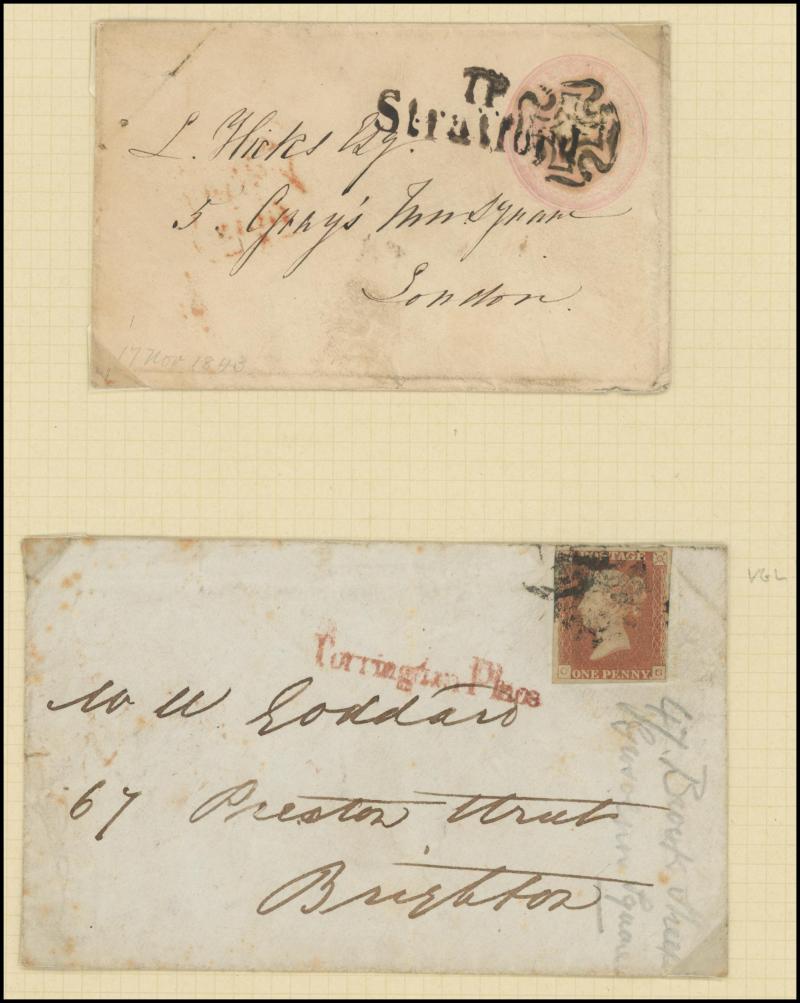 TP
Stratford
L. Hicks Esq.
5. Gray's Inn Square
London.
17 Nov 1843
POSTAGE
C G
ONE PENNY
VGL
Torrington Place
W Goddard
67 Preston Street
Brighton
47
Square